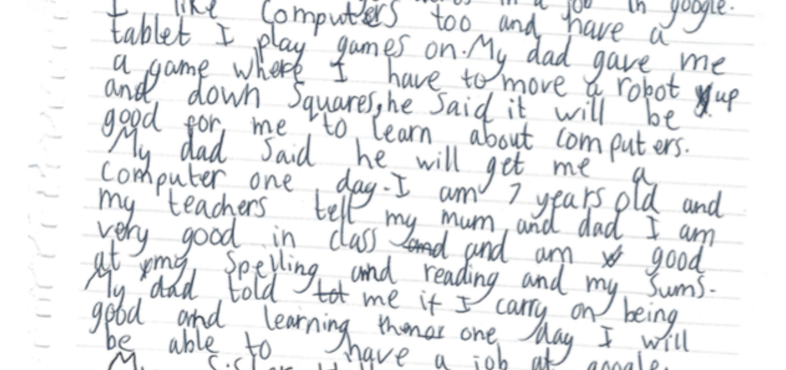 a job in google.
I like Computers too and have a
tablet I play games on. My dad gave me
a game where I have to move a robot up
and down Squares, he said it will be
good for me to learn about computers.
My dad said he will get me a
Computer one day. I am 7 years old and
my teachers tell my mum and dad I am
very good in class and and am good
at my Spelling and reading and my sums.
My dad told tot me if I carry on being
good and learning one day I will
be able to have a job at google.
My